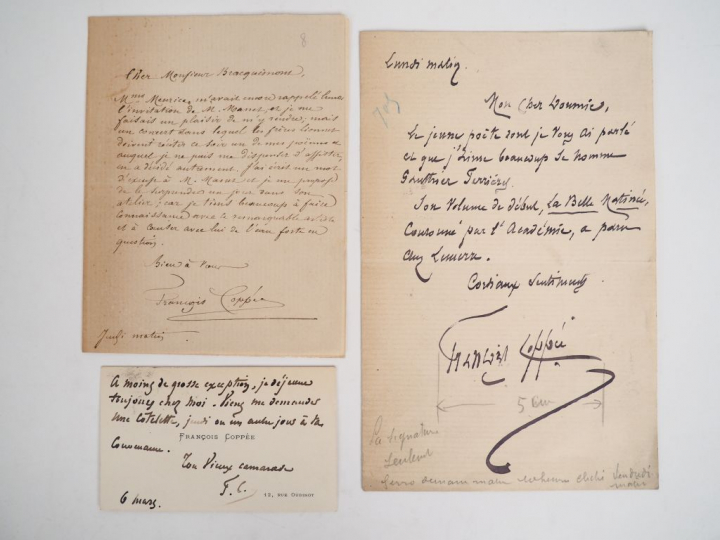 8
Cher Monsieur Bracquemond,
Mme Meurice m'avait rappelé
l'invitation de M. Manet et je me
faisais un plaisir de m'y rendre; mais
un concert dans lequel les frères Lionnet
doivent réciter ce soir un de mes poèmes &
auquel je ne puis me dispenser d'assister,
en a décidé autrement. J'ai écrit un mot
d'excuse à M. Manet et je me propose
de le surprendre un jour dans son
atelier; car je tiens beaucoup à faire
connaissance avec ce remarquable artiste
et à causer avec lui de l'eau forte en
question.
Bien à vous
François Coppée
Jeudi matin
Lundi matin.
Mon cher Doumic,
Le jeune poète dont je vous ai parlé
et que j'aime beaucoup se nomme
Gauthier Ferrières.
Son volume de début, La Belle Matinée,
Couronné par l'Académie, a paru
chez Lemerre.
Cordiaux sentiments
François Coppée
5 cm
La signature
seulement
demain matin cliché Vendredi
matin
A moins de grosse exception, je déjeune
toujours chez moi. Viens me demander
une côtelette, jeudi ou un autre jour à ta
convenance.
FRANÇOIS COPPÉE
Ton vieux camarade
F. C.
6 mars.
12, RUE OUDINOT